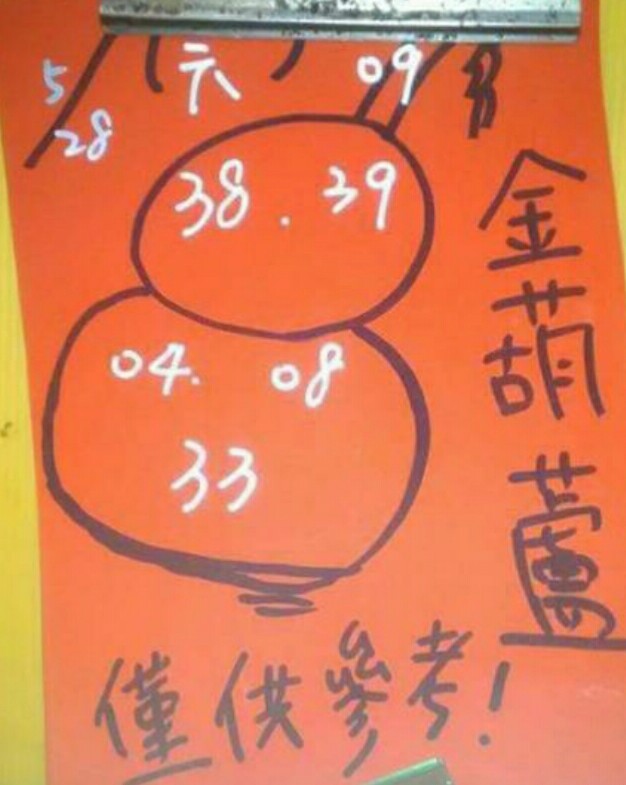 5/28 (六) 09
38. 39
04. 08
33
金葫蘆
僅供參考!